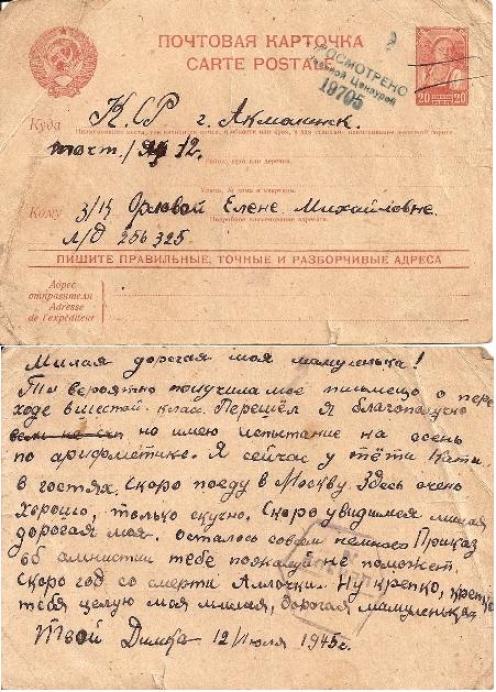 ПОЧТОВАЯ КАРТОЧКА
CARTE POSTALE
ПРОСМОТРЕНО
Военной Цензурой
19705
20 20
Куда К.СР г. Акмолинск.
почт./ящ 12.
Кому З/К Орловой Елене Михайловне.
Подробное наименование адресата
л/д 256325
ПИШИТЕ ПРАВИЛЬНЫЕ, ТОЧНЫЕ И РАЗБОРЧИВЫЕ АДРЕСА
Адрес
отправителя
Adresse
de l'expéditeur
Милая дорогая моя мамуленька!
Ты вероятно получила мое письмецо о пере
ходе в шестой класс. Перешёл я благополучно
но имею испытание на осень
по арифметике. Я сейчас у тёти Кати
в гостях. Скоро поеду в Москву. Здесь очень
хорошо, только скучно. Скоро увидимся милая
дорогая моя. осталось совсем немного Приказ
об амнистии тебе пожалуй не поможет.
Скоро год со смерти Аллочки. Ну крепко, крепко
тебя целую моя милая, дорогая мамуленька
Твой Димка 12 Июля 1945г.